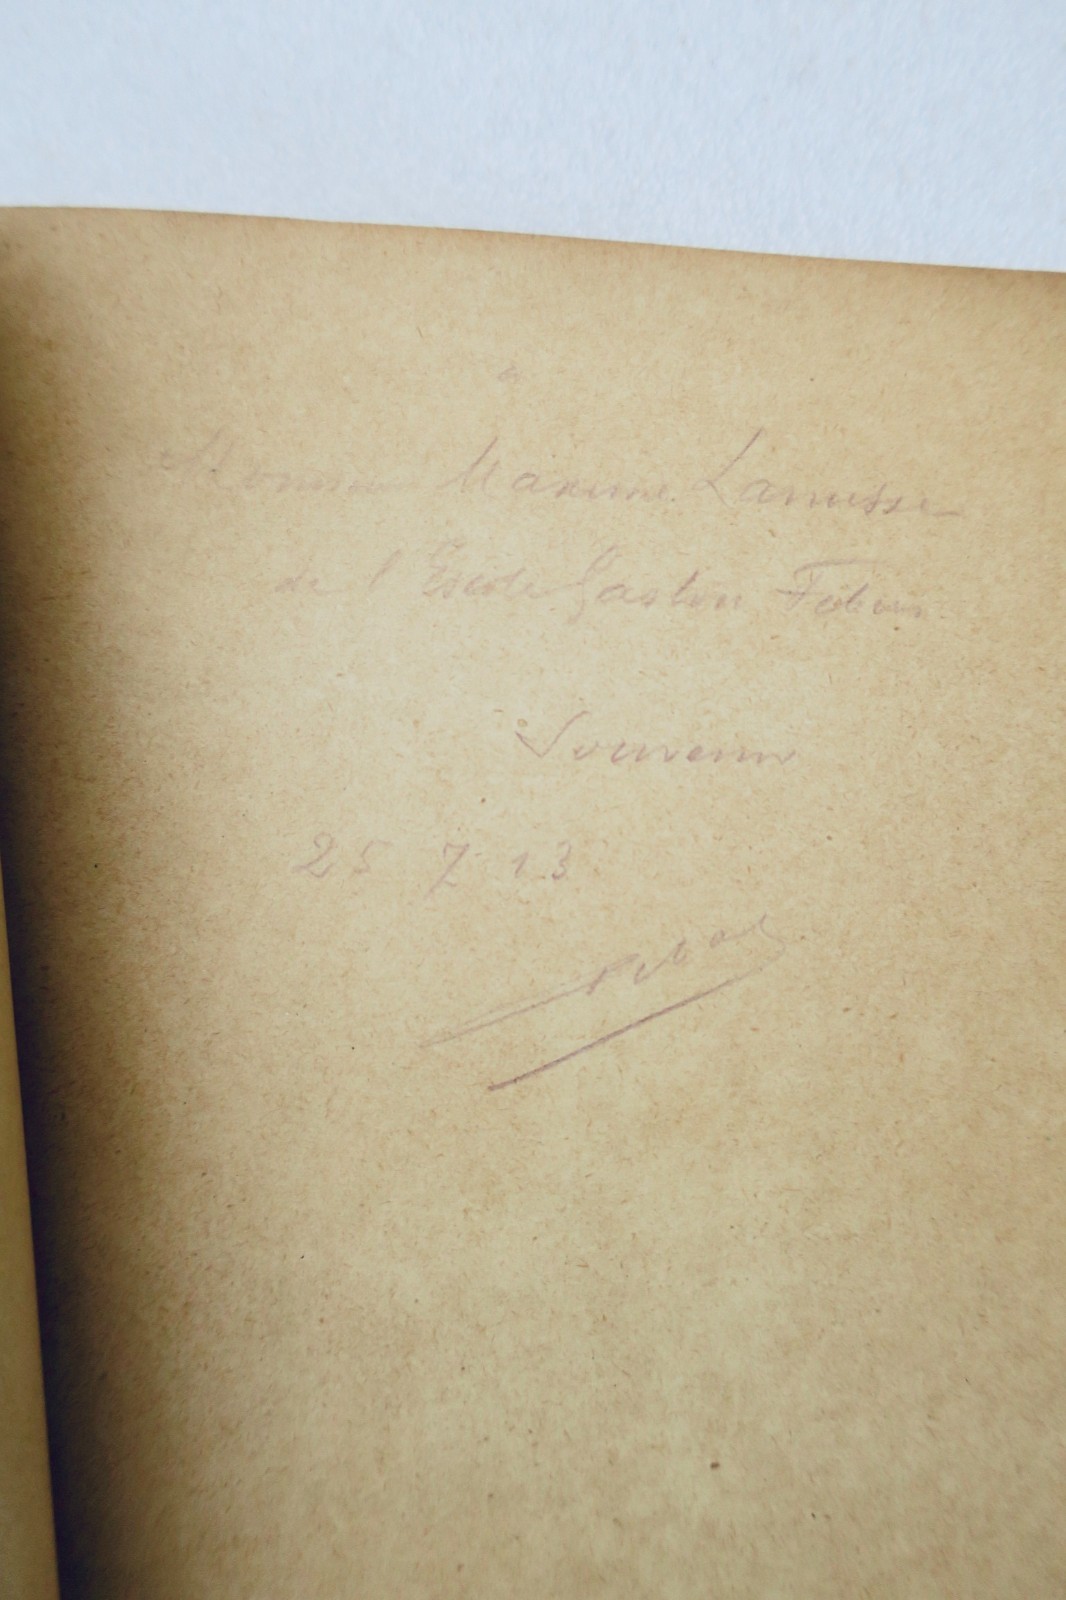 à
Monsieur Maxime Lanusse
de l'Escole Gaston Febus
Souvenir
25 7 13